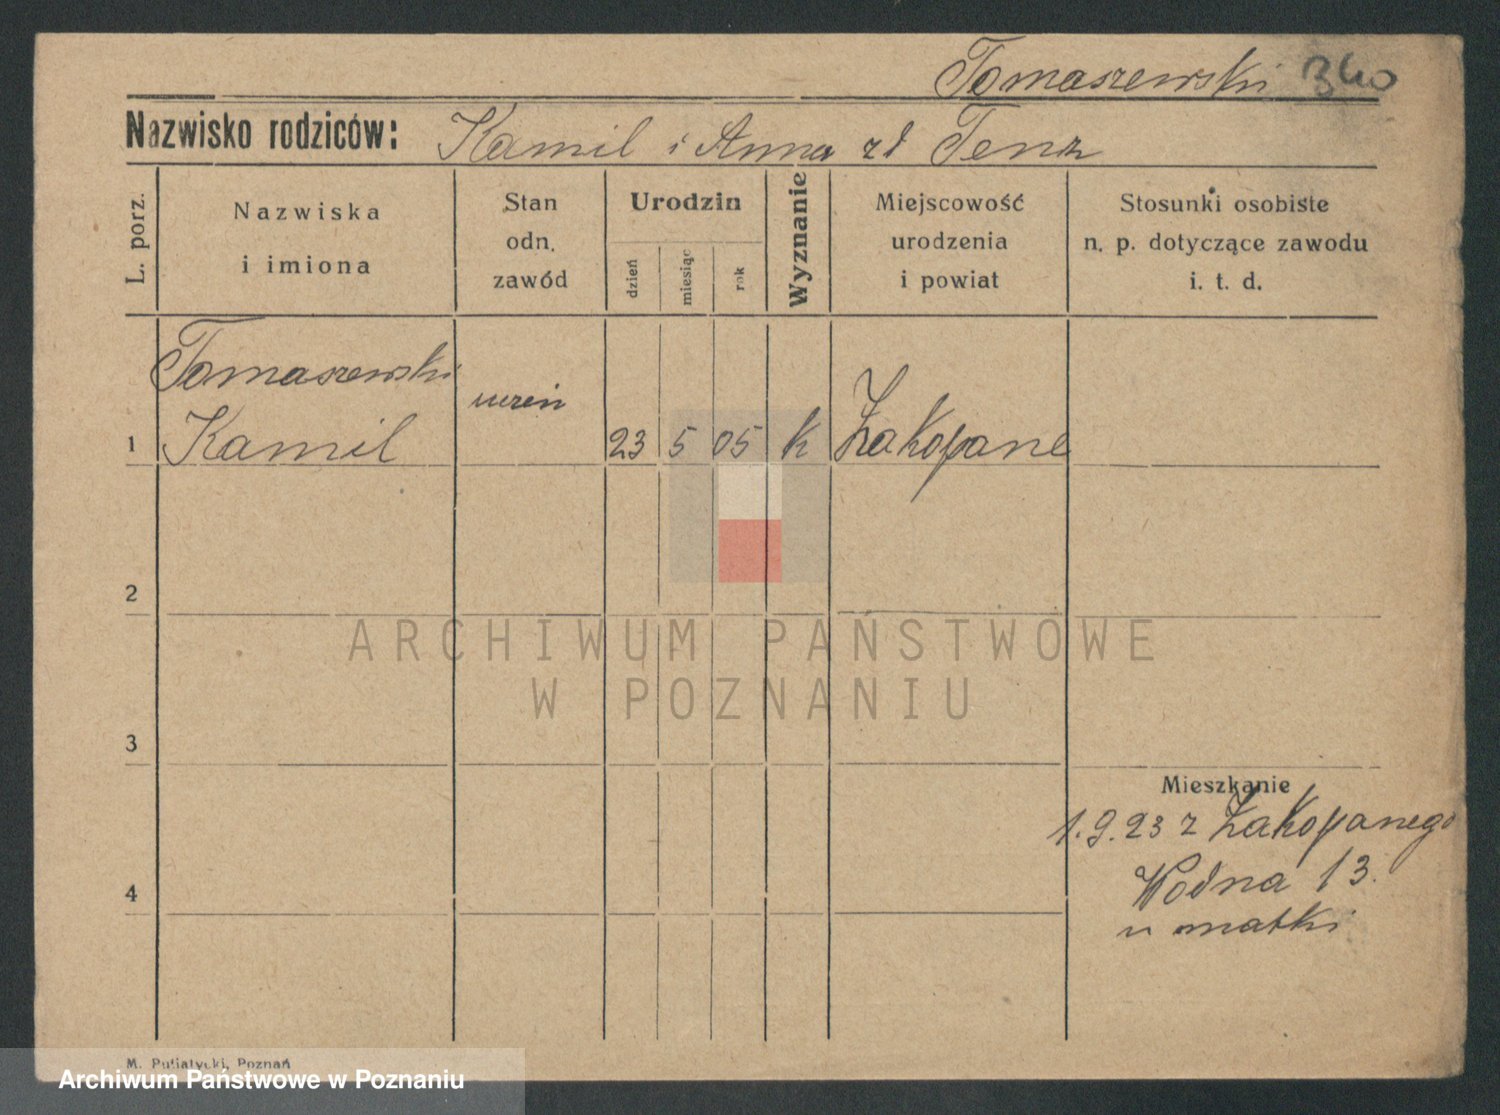 Tomaszewski 340
Nazwisko rodziców: Kamil i Anna zd Tenz
L. porz.
Nazwiska
i imiona
Stan
odn.
zawód
Urodzin
dzień
miesiąc
rok
Wyznanie
Miejscowość
urodzenia
i powiat
Stosunki osobiste
n. p. dotyczące zawodu
i. t. d.
Tomaszewski
uczeń
1 Kamil 23 5 05 k Zakopane
2
ARCHIWUM PAŃSTWOWE
W POZNANIU
3
Mieszkanie
1.9.23 z Zakopanego
Wodna 13.
4
u matki
M. Putiatycki, Poznań
Archiwum Państwowe w Poznaniu